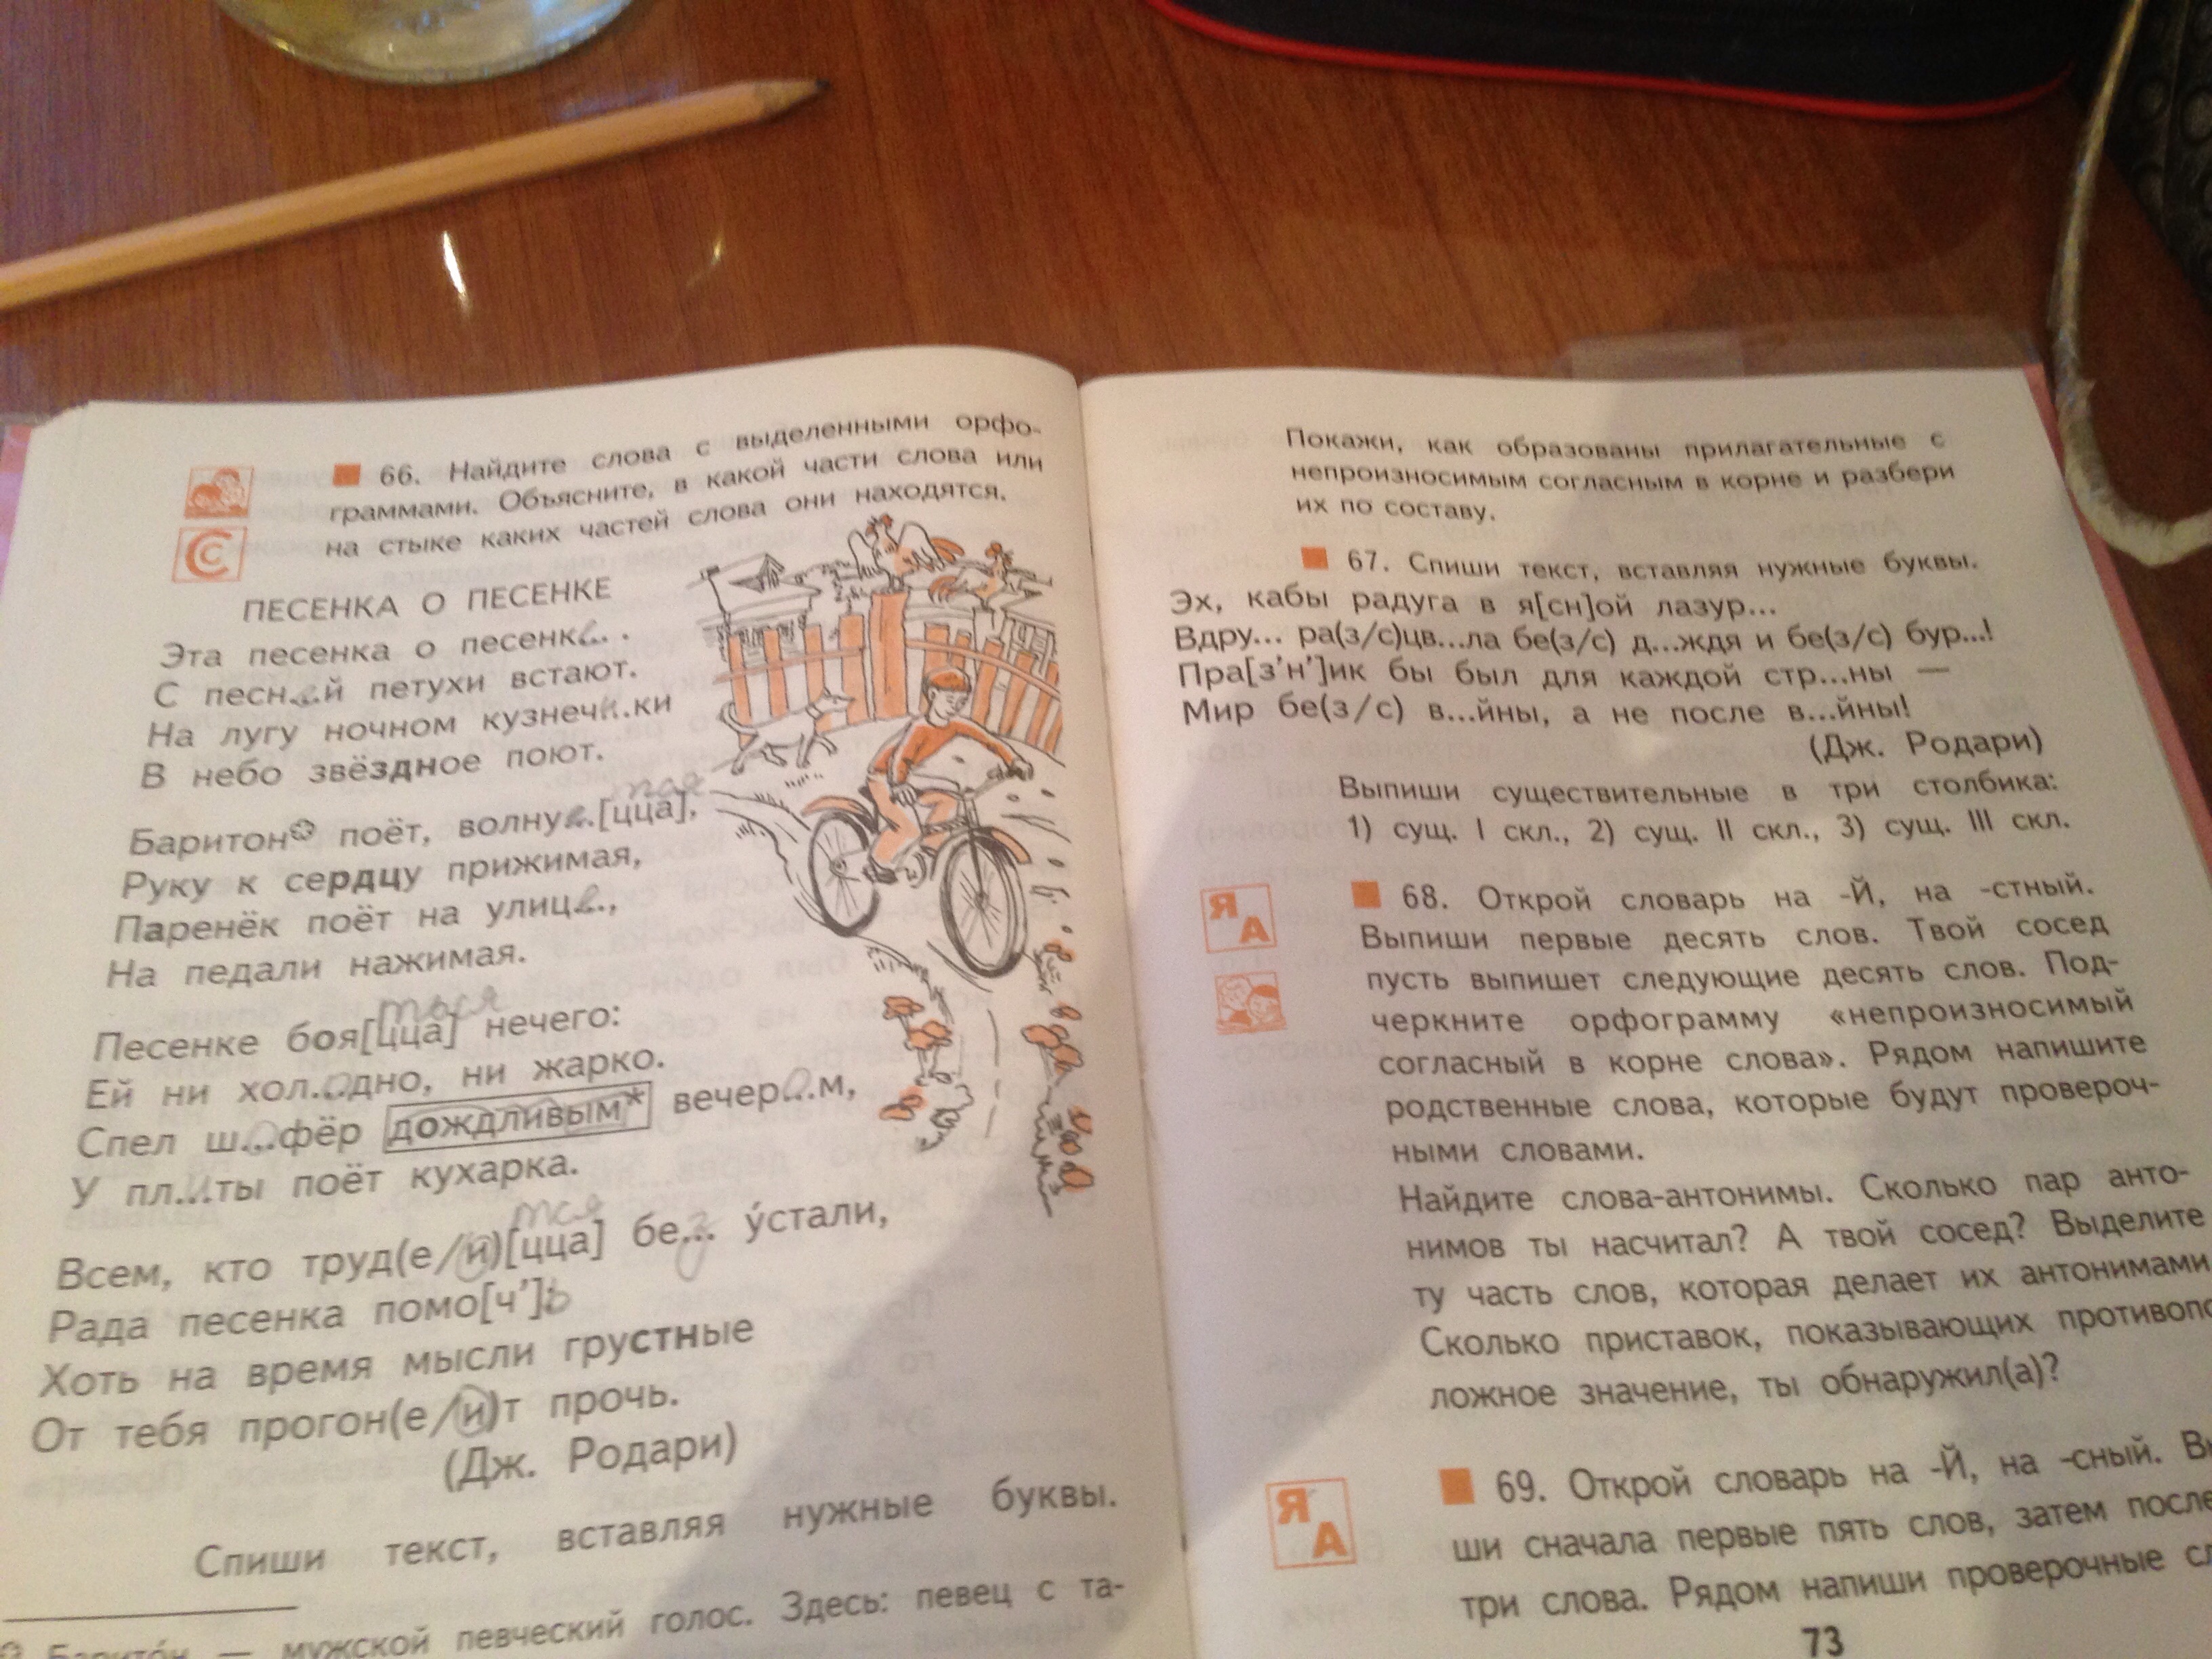 66. Найдите слова с выделенными орфо-
граммами. Объясните, в какой части слова или
на стыке каких частей слова они находятся.
С
ПЕСЕНКА О ПЕСЕНКЕ
Эта песенка о песенке...
С песн...ей петухи встают.
На лугу ночном кузнечи..ки
В небо звёздное поют.
тся
Баритон поёт, волнуе..[цца],
Руку к сердцу прижимая,
Паренёк поёт на улице..,
На педали нажимая.
ться
Песенке боя[цца] нечего:
Ей ни хол...одно, ни жарко.
Спел ш...офёр дождливым* вечеро...м,
У пл...иты поёт кухарка.
тся
Всем, кто труд(е/и)[цца] без... у́стали,
Рада песенка помо[ч']ь
Хоть на время мысли грустные
От тебя прогон(е/и)т прочь.
(Дж. Родари)
Спиши текст, вставляя нужные буквы.
Барито́н — мужской певческий голос. Здесь: певец с та-
Покажи, как образованы прилагательные с
непроизносимым согласным в корне и разбери
их по составу.
67. Спиши текст, вставляя нужные буквы.
Эх, кабы радуга в я[сн]ой лазур...
Вдру... ра(з/с)цв...ла бе(з/с) д...ждя и бе(з/с) бур...!
Пра[з'н']ик бы был для каждой стр...ны —
Мир бе(з/с) в...йны, а не после в...йны!
(Дж. Родари)
Выпиши существительные в три столбика:
1) сущ. I скл., 2) сущ. II скл., 3) сущ. III скл.
Я А
68. Открой словарь на -Й, на -стный.
Выпиши первые десять слов. Твой сосед
пусть выпишет следующие десять слов. Под-
черкните орфограмму «непроизносимый
согласный в корне слова». Рядом напишите
родственные слова, которые будут провероч-
ными словами.
Найдите слова-антонимы. Сколько пар анто-
нимов ты насчитал? А твой сосед? Выделите
ту часть слов, которая делает их антонимами
Сколько приставок, показывающих противопо
ложное значение, ты обнаружил(а)?
Я А
69. Открой словарь на -Й, на -сный. Вы
ши сначала первые пять слов, затем после
три слова. Рядом напиши проверочные сл
73